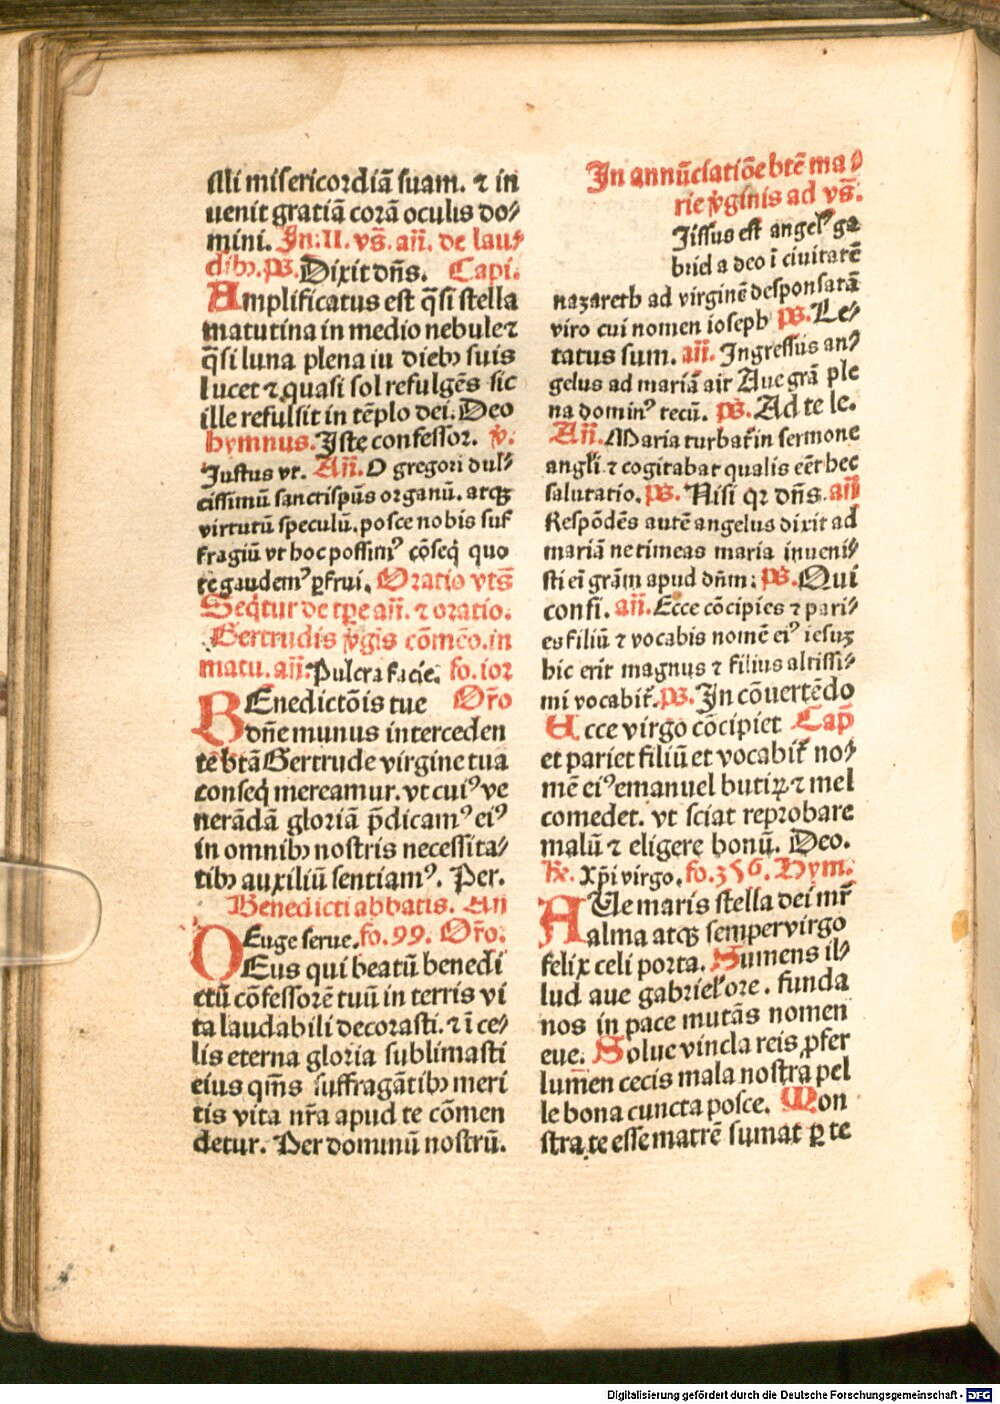 illi misericordiā suam. ⁊ in
uenit gratiā corā oculis do/
mini. In: II. vs̄. añ. de lau/
dibꝰ. ps̄. Dixit dn̄s. Capi.
Amplificatus est q̄si stella
matutina in medio nebule ⁊
q̄si luna plena iu diebꝰ suis
lucet ⁊ quasi sol refulgēs sic
ille refulsit in tēplo dei. Deo
hymnus. Iste confessor. ꝟ.
Justus vt. Añ. O gregori dul/
cissimū sanctispūs organū. atqꝫ
virtutū speculū. posce nobis suf
fragiū vt hoc possimꝰ cōseq̄ quo
te gaudemꝰ ꝑfrui. Oratio vts̄
Seq̄tur de tꝑe añ. ⁊ oratio.
Gertrudis ꝟgīs cōmēo. in
matu. añ. Pulcra facie. fo. ior
BEnedictōis tue Oro
dn̄e munus interceden
te btā Gertrude virgine tua
conseq̄ mereamur. vt cuiꝰ ve
nerādā gloriā p̄dicamꝰ eiꝰ
in omnibꝰ nostris necessita/
tibꝰ auxiliū sentiamꝰ. Per.
Benedicti abbatis. An
Euge serue. fo. 99. Or̄o.
DEus qui beatū benedi
ctū cōfessorē tuū in terris vi
ta laudabili decorasti. ⁊ ī ce/
lis eterna gloria sublimasti
eius qm̄s suffragātibꝰ meri
tis vita nr̄a apud te cōmen
detur. Per dominū nostrū.
In annūciatiōe btē ma/
rie ꝟginis ad vs̄.
Jissus est angelꝰ ga
briel a deo ī ciuitatē
nazareth ad virginē desponsatā
viro cui nomen ioseph ps̄. Le/
tatus sum. añ. Ingressus an/
gelus ad mariā ait Aue grā ple
na dominꝰ tecū. ps̄. Ad te le.
Añ. Maria turbat̄ in sermone
angli ⁊ cogitabat qualis eēt hec
salutatio. ps̄. Nisi qr dn̄s. añ
Respōdēs autē angelus dixit ad
mariā ne timeas maria inueni/
sti ei grām apud dn̄m: ps̄. Qui
confi. añ. Ecce cōcipies ⁊ pari/
es filiū ⁊ vocabis nomē eiꝰ iesuꝫ
hic erit magnus ⁊ filius altissi/
mi vocabit̄. ps̄. In cōuertēdo
Ecce virgo cōcipiet Cap̄
et pariet filiū et vocabit̄ no/
mē eiꝰ emanuel butiꝝ ⁊ mel
comedet. vt sciat reprobare
malū ⁊ eligere bonū. Deo.
℞. Xp̄i virgo. fo. 356. Hym.
AUe maris stella dei mr̄
alma atqꝫ semper virgo
felix celi porta. Sumens il/
lud aue gabriel' ore. funda
nos in pace mutās nomen
eue. Solue vincla reis ꝓfer
lumen cecis mala nostra pel
le bona cuncta posce. Mon
stra te esse matrē sumat ꝑ te
Digitalisierung gefördert durch die Deutsche Forschungsgemeinschaft - DFG